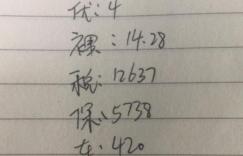 优:4
裸:14.28
税:12637
保:5738
车:420